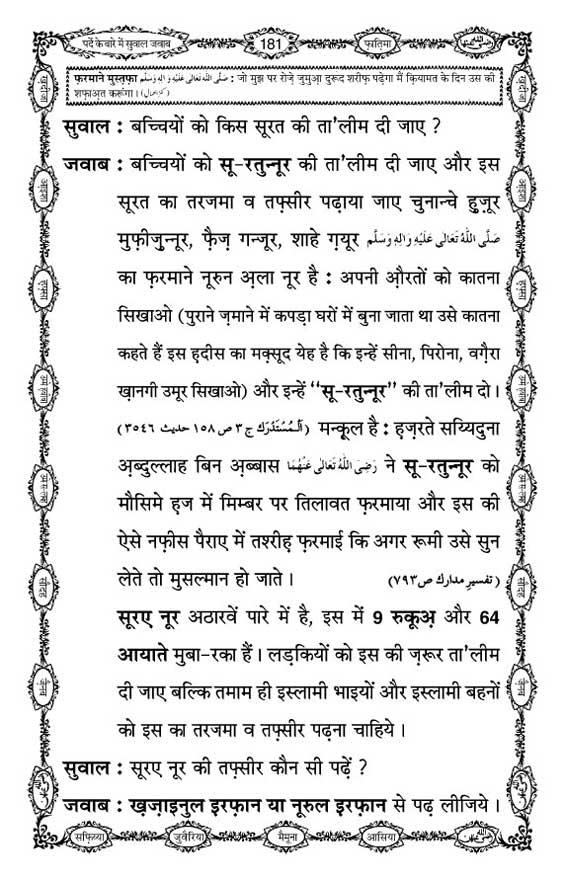 पर्दे के बारे में सुवाल जवाब
181
फ़ातिमा
फ़रमाने मुस्तफ़ा صَلَّى اللهُ تَعَالٰى عَلَيْهِ وَاٰلِهٖ وَسَلَّم : जो मुझ पर रोज़े जुमुआ़ दुरूद शरीफ़ पढ़ेगा मैं क़ियामत के दिन उस की
शफ़ाअ़त करूंगा।
सुवाल : बच्चियों को किस सूरत की ता'लीम दी जाए ?
जवाब : बच्चियों को सू-रतुन्नूर की ता'लीम दी जाए और इस
सूरत का तरजमा व तफ़्सीर पढ़ाया जाए चुनान्चे हुज़ूर
मुफ़ीज़ुन्नूर, फ़ैज़ गन्जूर, शाहे ग़यूर صَلَّى اللهُ تَعَالٰى عَلَيْهِ وَاٰلِهٖ وَسَلَّم
का फ़रमाने नूरुन अ़ला नूर है : अपनी औ़रतों को कातना
सिखाओ (पुराने ज़माने में कपड़ा घरों में बुना जाता था उसे कातना
कहते हैं इस ह़दीस का मक़्सूद येह है कि इन्हें सीना, पिरोना, वग़ैरा
ख़ानगी उमूर सिखाओ) और इन्हें “सू-रतुन्नूर” की ता'लीम दो।
(اَلْمُسْتَدْرَك ج ۳ ص ۱۵۸ حديث ۳۵٤٦) मन्कूल है : ह़ज़रते सय्यिदुना
अ़ब्दुल्लाह बिन अ़ब्बास رَضِىَ اللهُ تَعَالٰى عَنْهُمَا ने सू-रतुन्नूर को
मौसिमे ह़ज में मिम्बर पर तिलावत फ़रमाया और इस की
ऐसे नफ़ीस पैराए में तश्रीह़ फ़रमाई कि अगर रूमी उसे सुन
लेते तो मुसल्मान हो जाते। (تفسيرِ مدارك ص ۷۹۳)
सूरए नूर अठारवें पारे में है, इस में 9 रुकूअ़ और 64
आयाते मुबा-रका हैं। लड़कियों को इस की ज़रूर ता'लीम
दी जाए बल्कि तमाम ही इस्लामी भाइयों और इस्लामी बहनों
को इस का तरजमा व तफ़्सीर पढ़ना चाहिये।
सुवाल : सूरए नूर की तफ़्सीर कौन सी पढ़ें ?
जवाब : ख़ज़ाइनुल इरफ़ान या नूरुल इरफ़ान से पढ़ लीजिये।
सफ़िय्या
जुवैरिया
मैमूना
आसिया